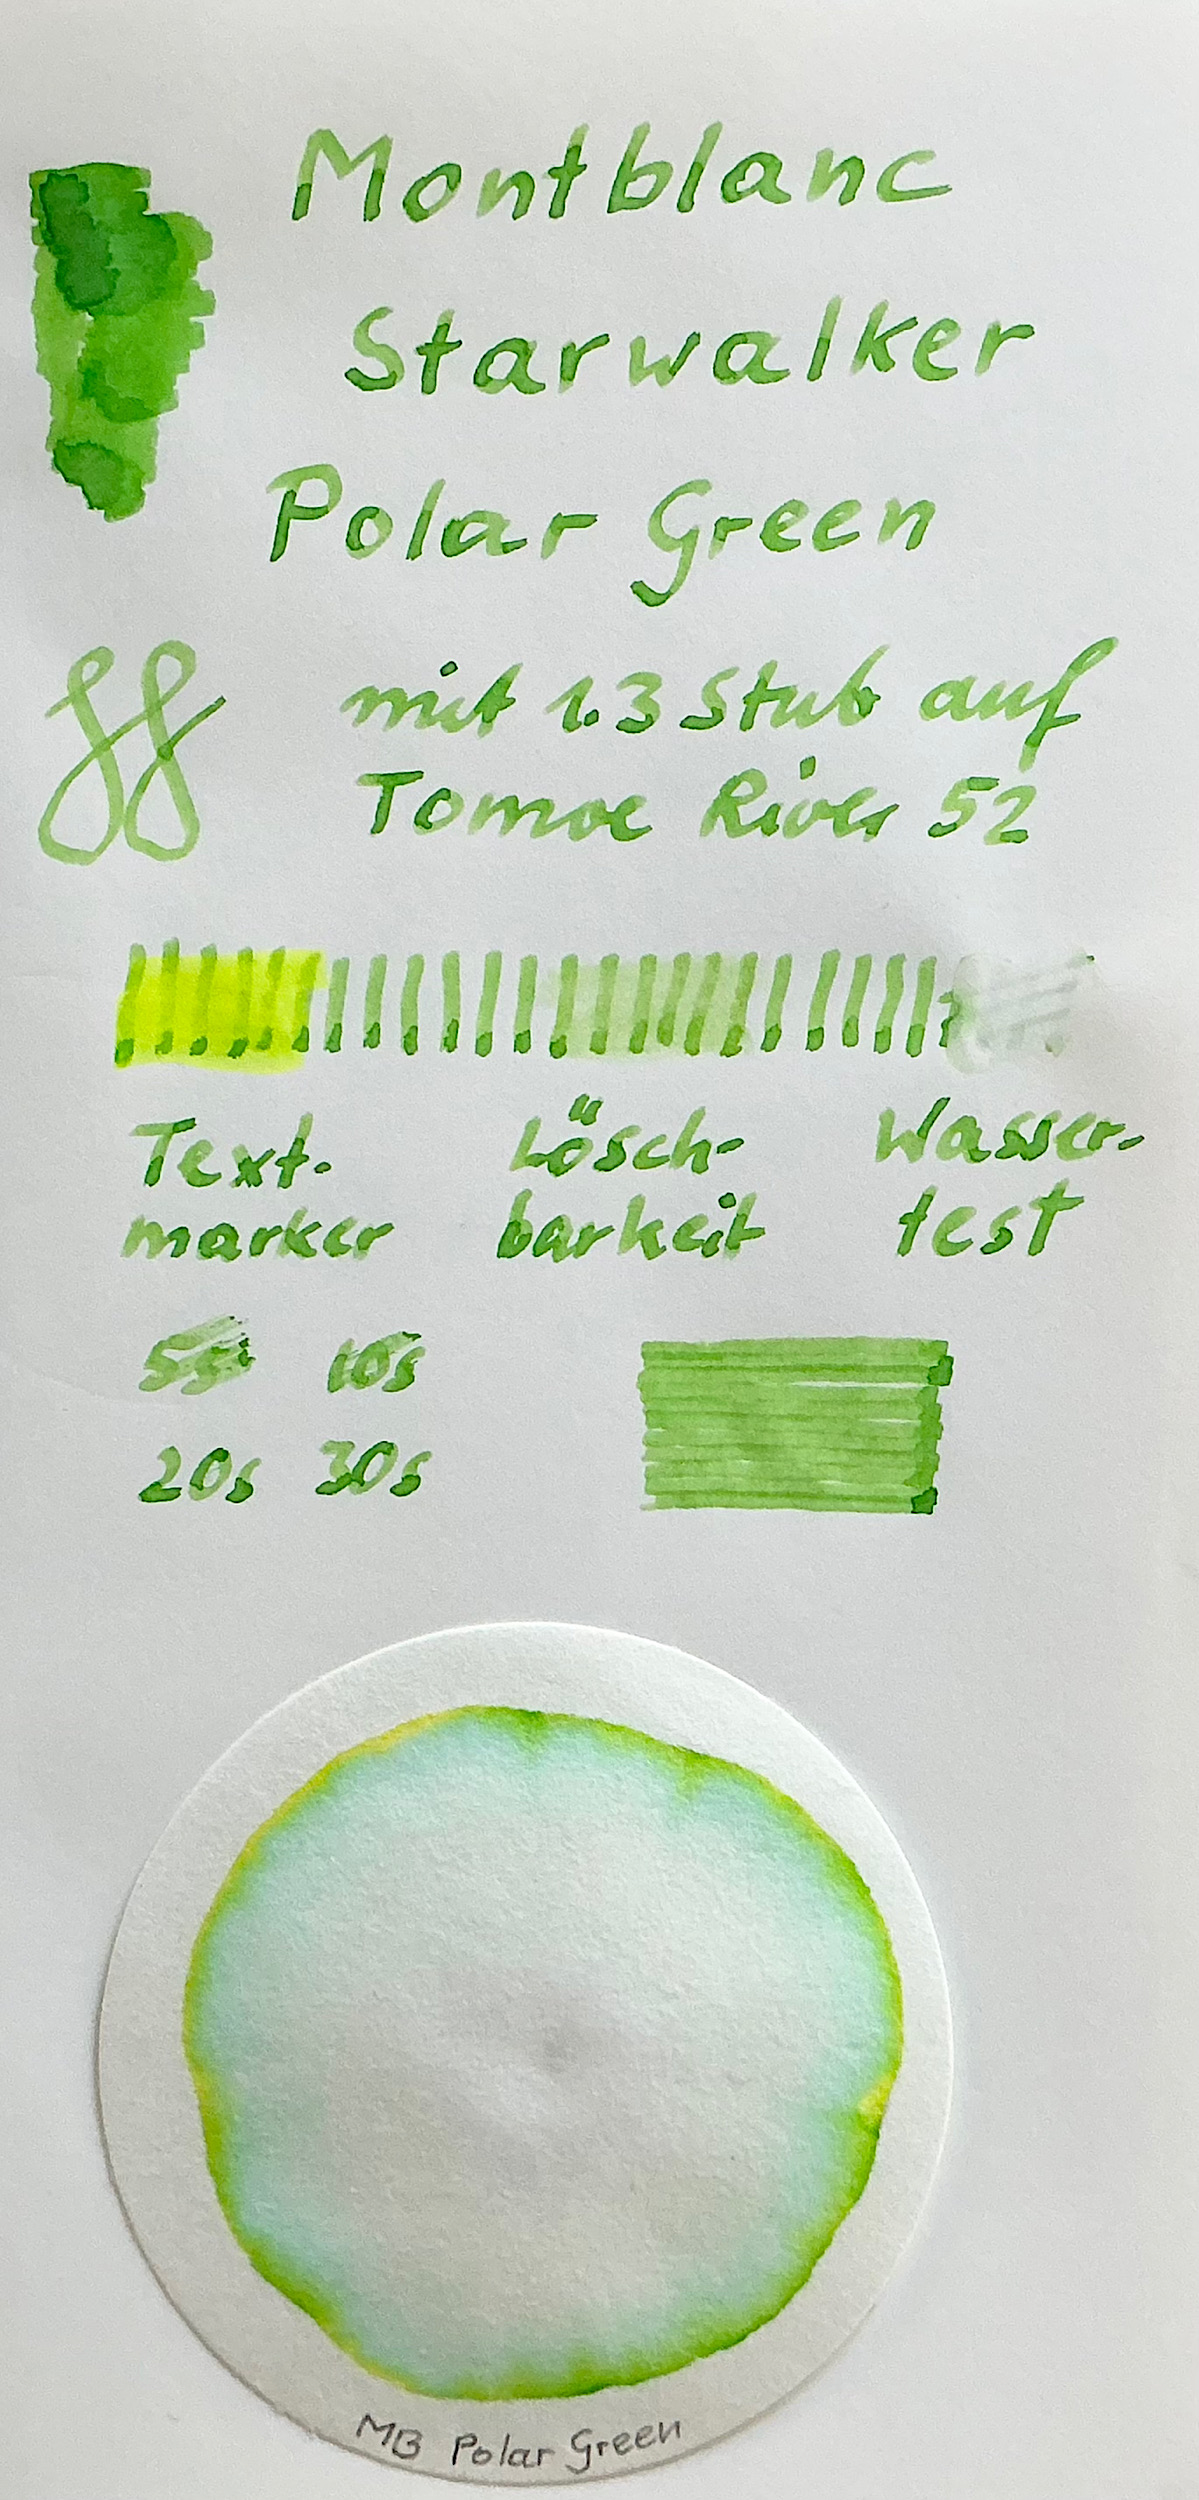 Montblanc
Starwalker
Polar Green
mit 1.3 Stub auf
Tomoe River 52
Text- Lösch- Wasser-
marker barkeit test
5s 10s
20s 30s
MB Polar Green